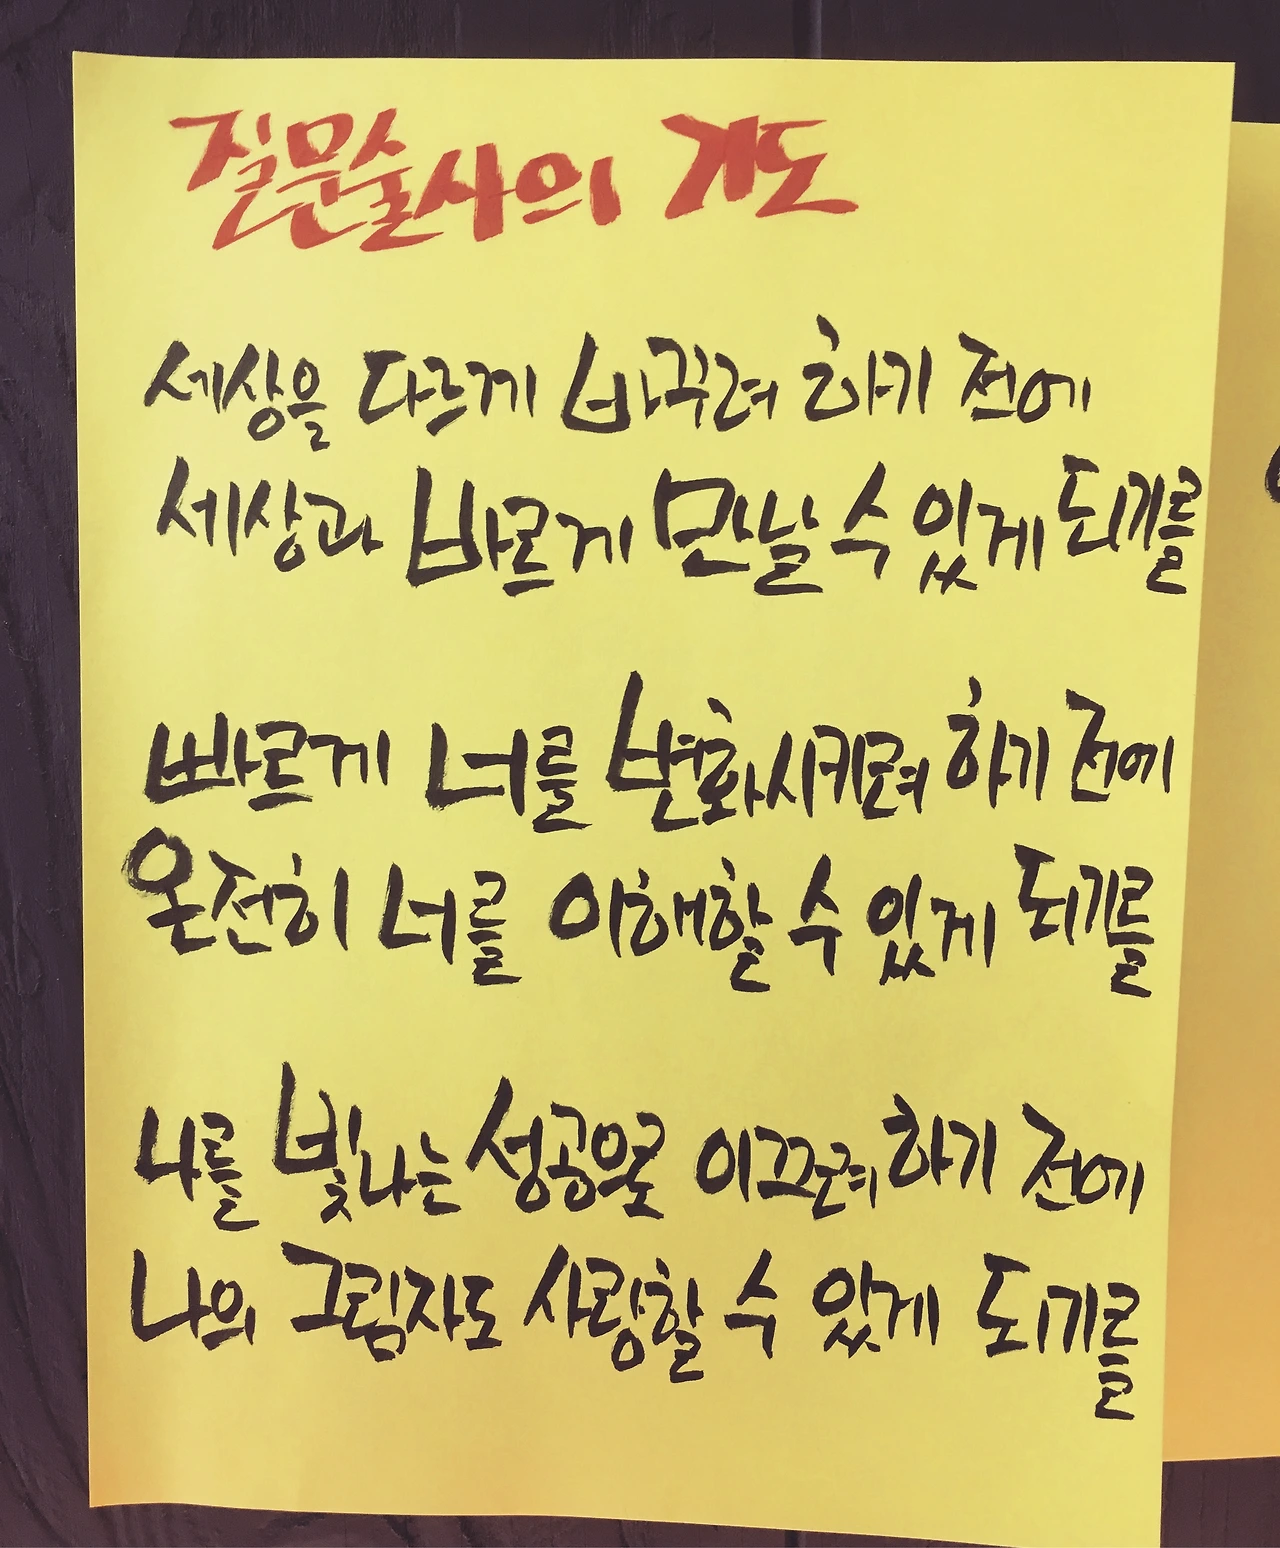 질문술사의 기도
세상을 다르게 바꾸려 하기 전에
세상과 바르게 만날 수 있게 되기를
빠르게 너를 변화시키려 하기 전에
온전히 너를 이해할 수 있게 되기를
나를 빛나는 성공으로 이끄려 하기 전에
나의 그림자도 사랑할 수 있게 되기를